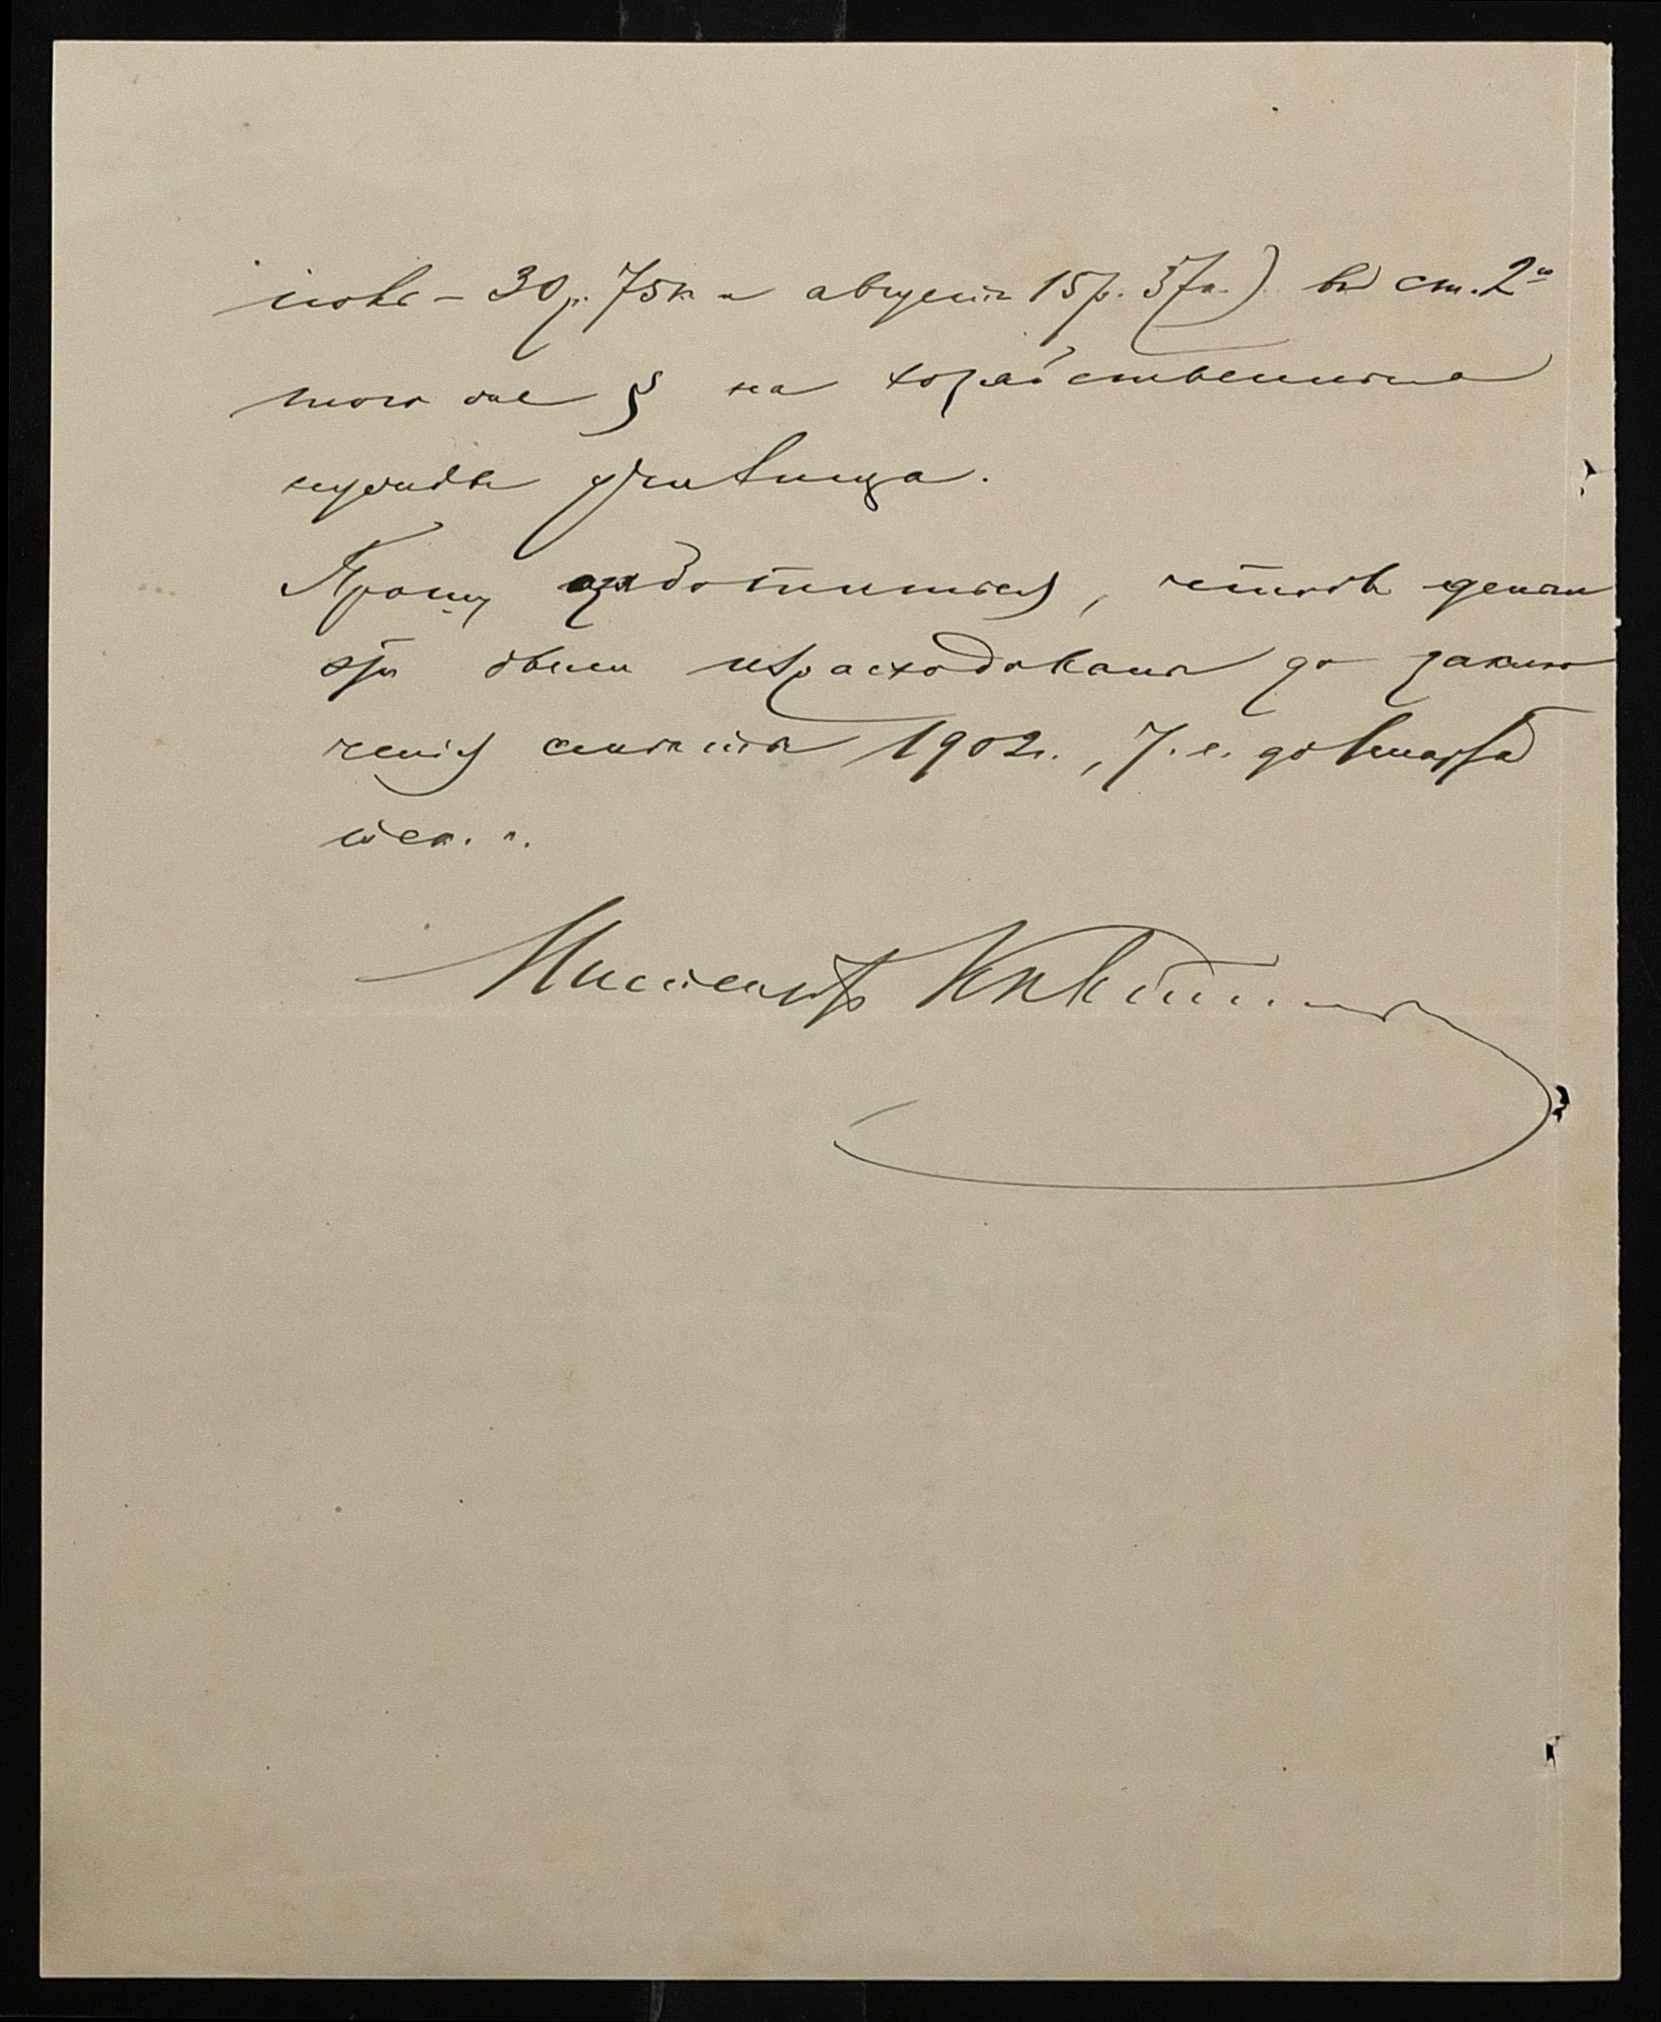 іюль – 30 р. 75 к. и августъ 15 р. 37 к.) въ ст. 2ю
того же § на хозяйственныя
нужды училища.
Прошу озаботиться, чтобы деньги
эти были израсходованы до заклю
ченія смѣты 1902 г., т. е. до марта
мѣс. с. г.
Инспекторъ